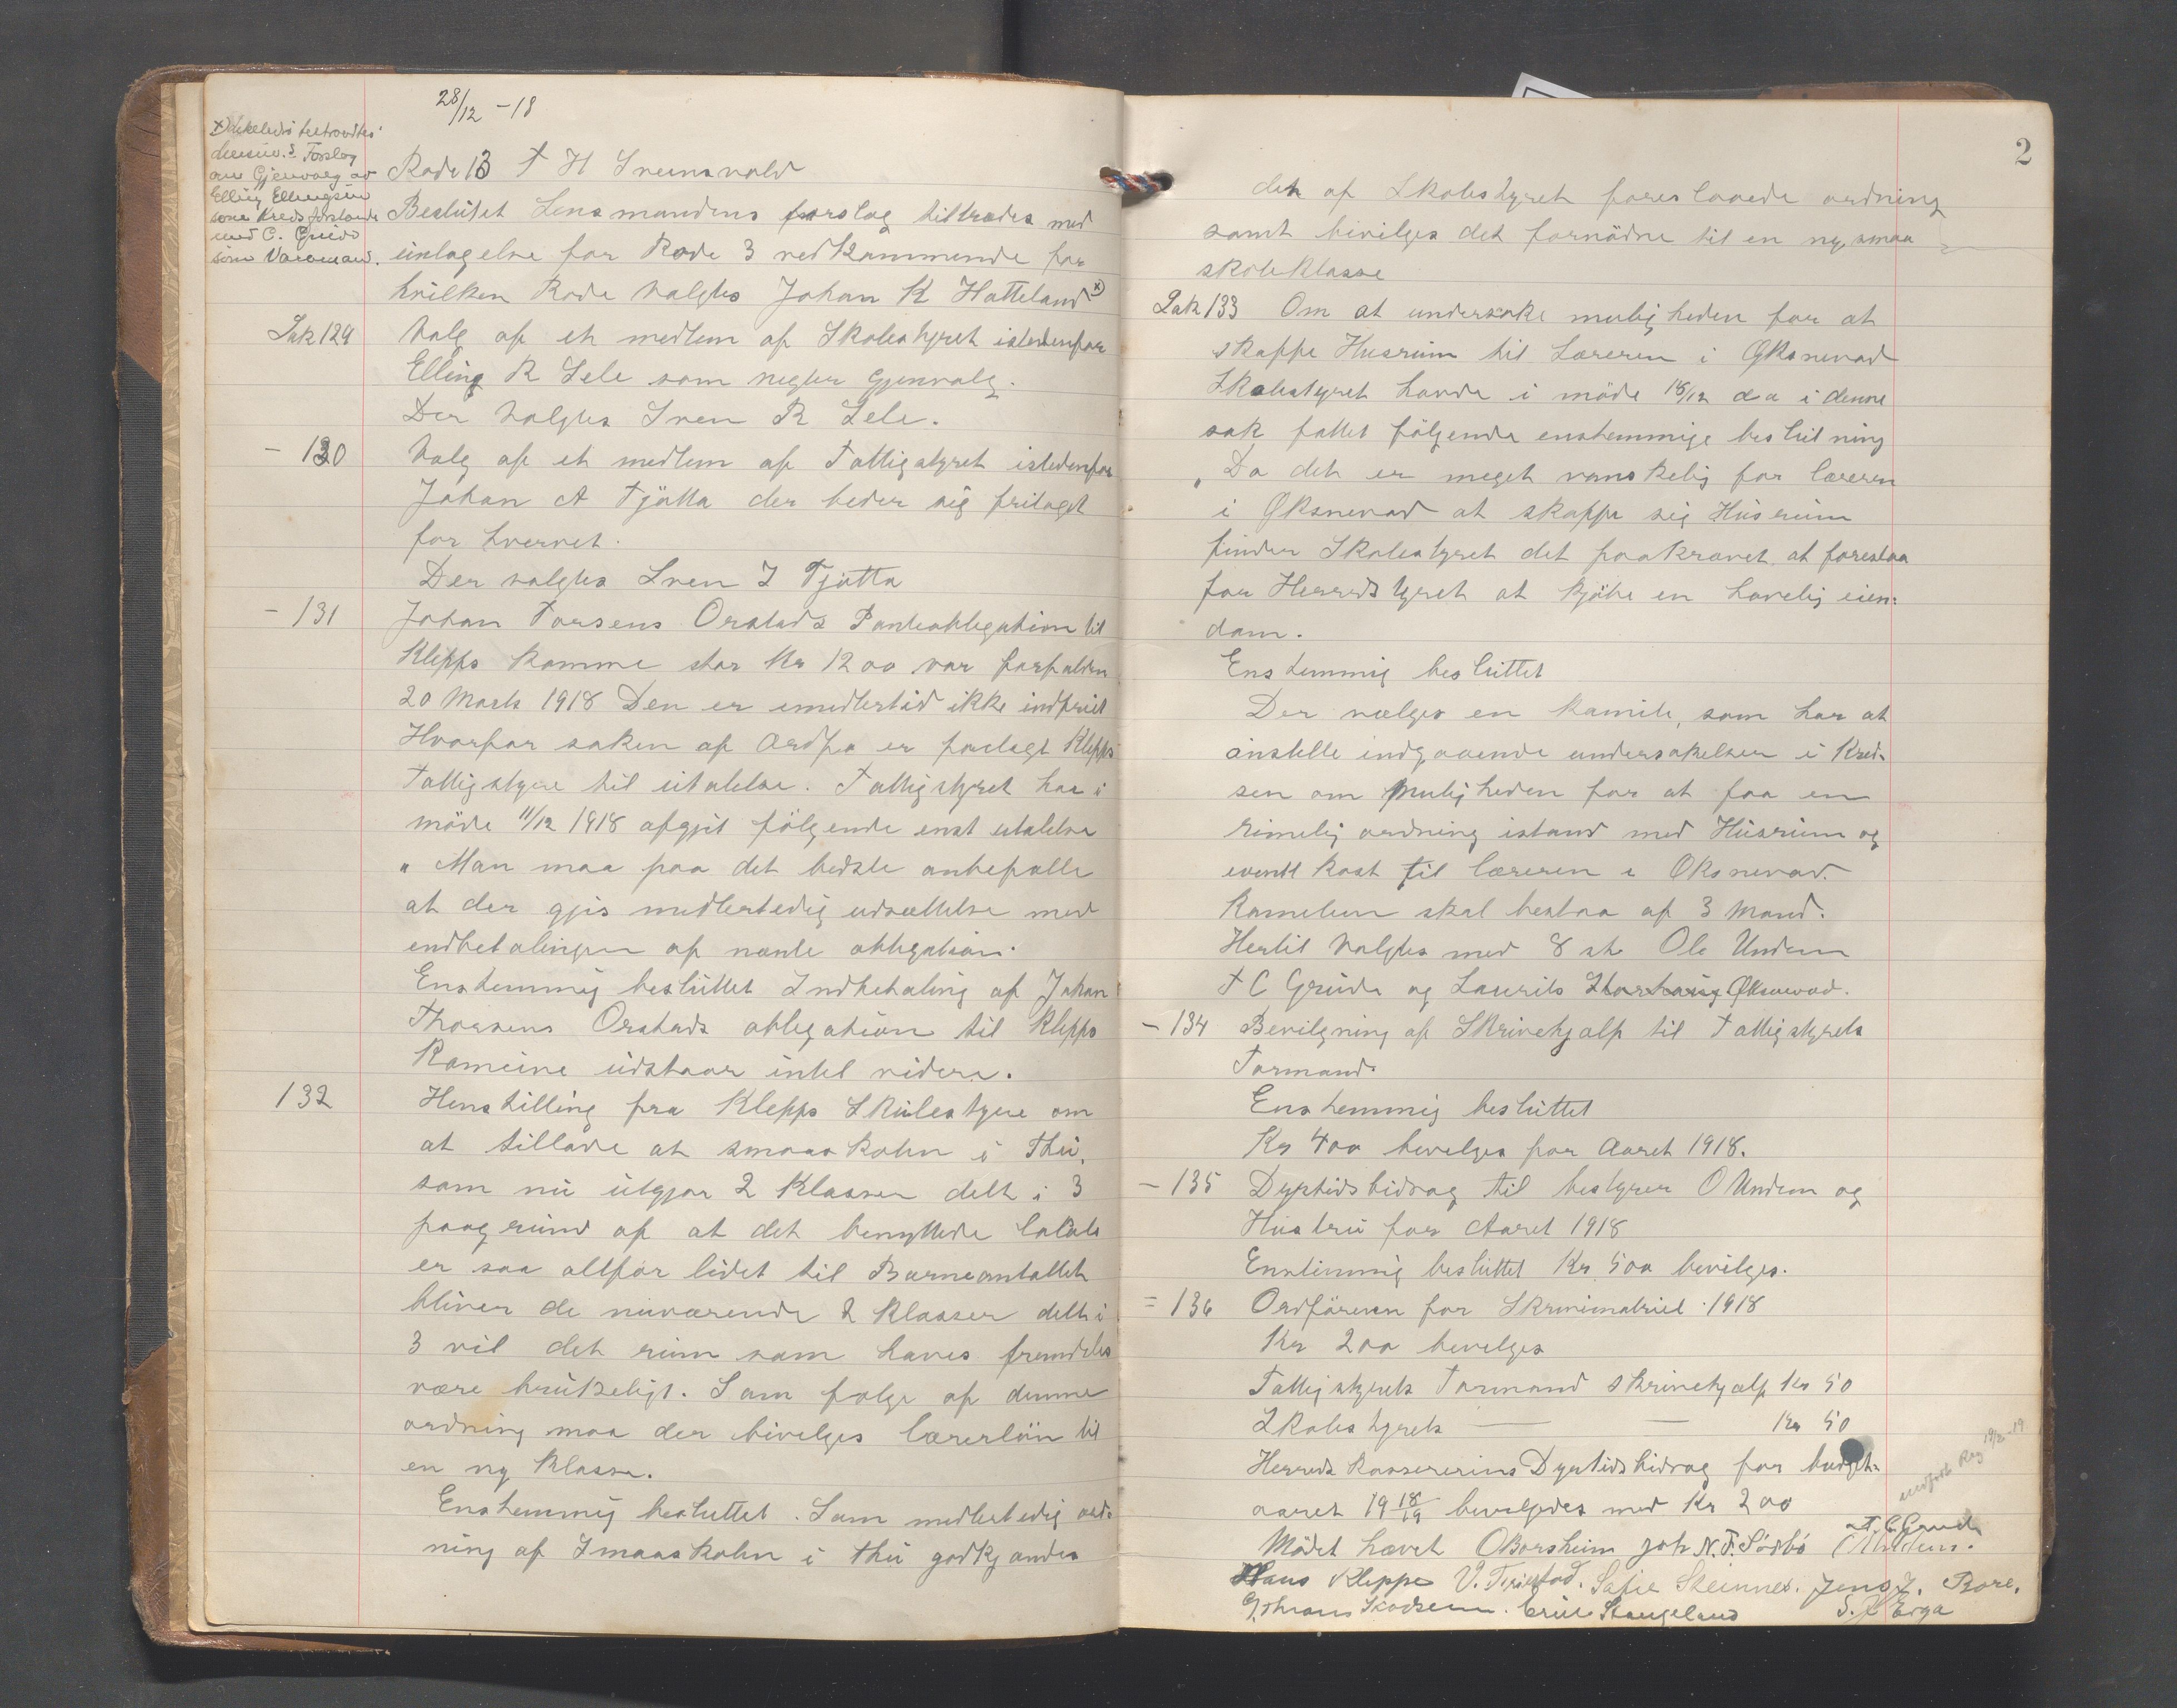 28/12 - 18
x) Forslag
om Gjenvalg av
Elling Ellingsen
som Kredsforstander
med C. Gruda
som Varamand.
Rode 13 T H Sveinsvold
Beslutet Lensmandens forslag tiltrædes med
untagelse for Rode 3 vedkommende for
hvilken Rode valgtes Johan K Hatteland x)
Sak 129 Valg af et medlem af Skolestyret istedenfor
Elling R Sele som negter gjenvalg.
Der valgtes Sven R Sele.
- 130 Valg af et medlem af Fattigstyret istedenfor
Johan A Tjøtta der beder sig fritaget
for hvervet.
Der valgtes Sven I Tjøtta
- 131 Johan Torsens Orstads Panteobligation til
Klepps komme stor Kr 1200 var forfalden
20 Marts 1918 Den er imedlertid ikke indfriet
Hvorfor saken af Ordfø er forelagt Klepps
Fattigstyre til utalelse. Fattigstyret har i
möde 11/12 1918 afgjit fölgende enst utalelse
" Man maa paa det bedste anbefalle
at der gjis midlertedig udsættelse med
endbetalingen af nævnte obligation.
Enstemmig besluttet Indbetaling af Johan
Thorsens Orstads obligation til Klepps
Komune udstaar intil videre.
132 Henstilling fra Klepps Skulestyre om
at tillade at smaaskolen i Thu,
som nu utgjør 2 Klasser delt i 3
paagrund af at det benyttede lokale
er saa altfor lidet til Barneantallet
bliver de nuværende 2 klasser delt i
3 vil det rum som haves fremdeles
være brukeligt. Som følge af denne
ordning maa der bivelges lærerlön til
en ny Klasse.
Enstemmig besluttet. Som midlertedig ord-
ning af Smaaskolen i Thu godkjendes
2
den af Skolestyret foreslaaede ordning
samt bevilges det fornödne til en ny smaa
skoleklasse
Sak 133 Om at undersøke muligheden for at
skaffe Husrum til Læreren i Øksnevad
Skolestyret havde i möde 18/12 da i denne
sak fattet fölgende enstemmige beslutning
„ Da det er meget vanskelig for læreren
i Øksnevad at skaffe sig Husrum
finder Skolestyret det paakrævet at foreslaa
for Herredstyret at kjöbe en havelig eien-
dom.
Enstemmig besluttet
Der vælges en komite, som har at
anstelle indgaaende undersøkelser i Kred-
sen om Muligheden for at faa en
rimelig ordning istand med Husrum og
eventl kost til læreren i Øksnevad.
Komiteen skal bestaa af 3 Mand.
Hertil valgtes med 8 st Ole Undem
T C Gruda og Laurits Øksnevad.
- 134 Bevilgning af Skrivehjælp til Fattigstyrets
Formand.
Enstemmig besluttet
Kr 400 bevelges for Aaret 1918.
- 135 Dyrtidsbidrag til bestyrer O Undem og
Hustru for Aaret 1918
Enstimmig besluttet Kr 500 bevilges.
= 136 Ordføreren for Skrivmatriel 1918
Kr 200 bevelges
Fattigstyrets Formand skrivehjælp Kr 50
Skolestyrets — — Kr 50
Herredskassererens Dyrtidsbidrag for budget-
aaret 1918/19 bevelgedes med Kr 200
Mödet hævet OBorsheim Joh N. F. Sørbö T. C. Gruda OUndem.
Hans Kleppe V. Friestad. Sofie Steinnes. Jens J. Bore.
Erik Stangeland S. J Erga